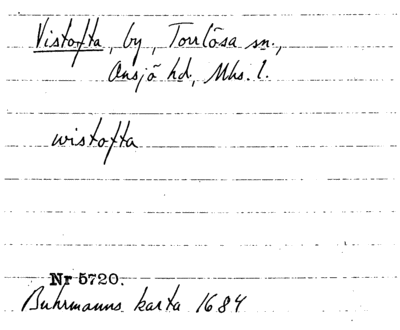 Vistofta, by, Torrlösa sn.,
Onsjö hd, Mhs. l.
wistofta
Nr 5720.
Buhrmanns karta 1684